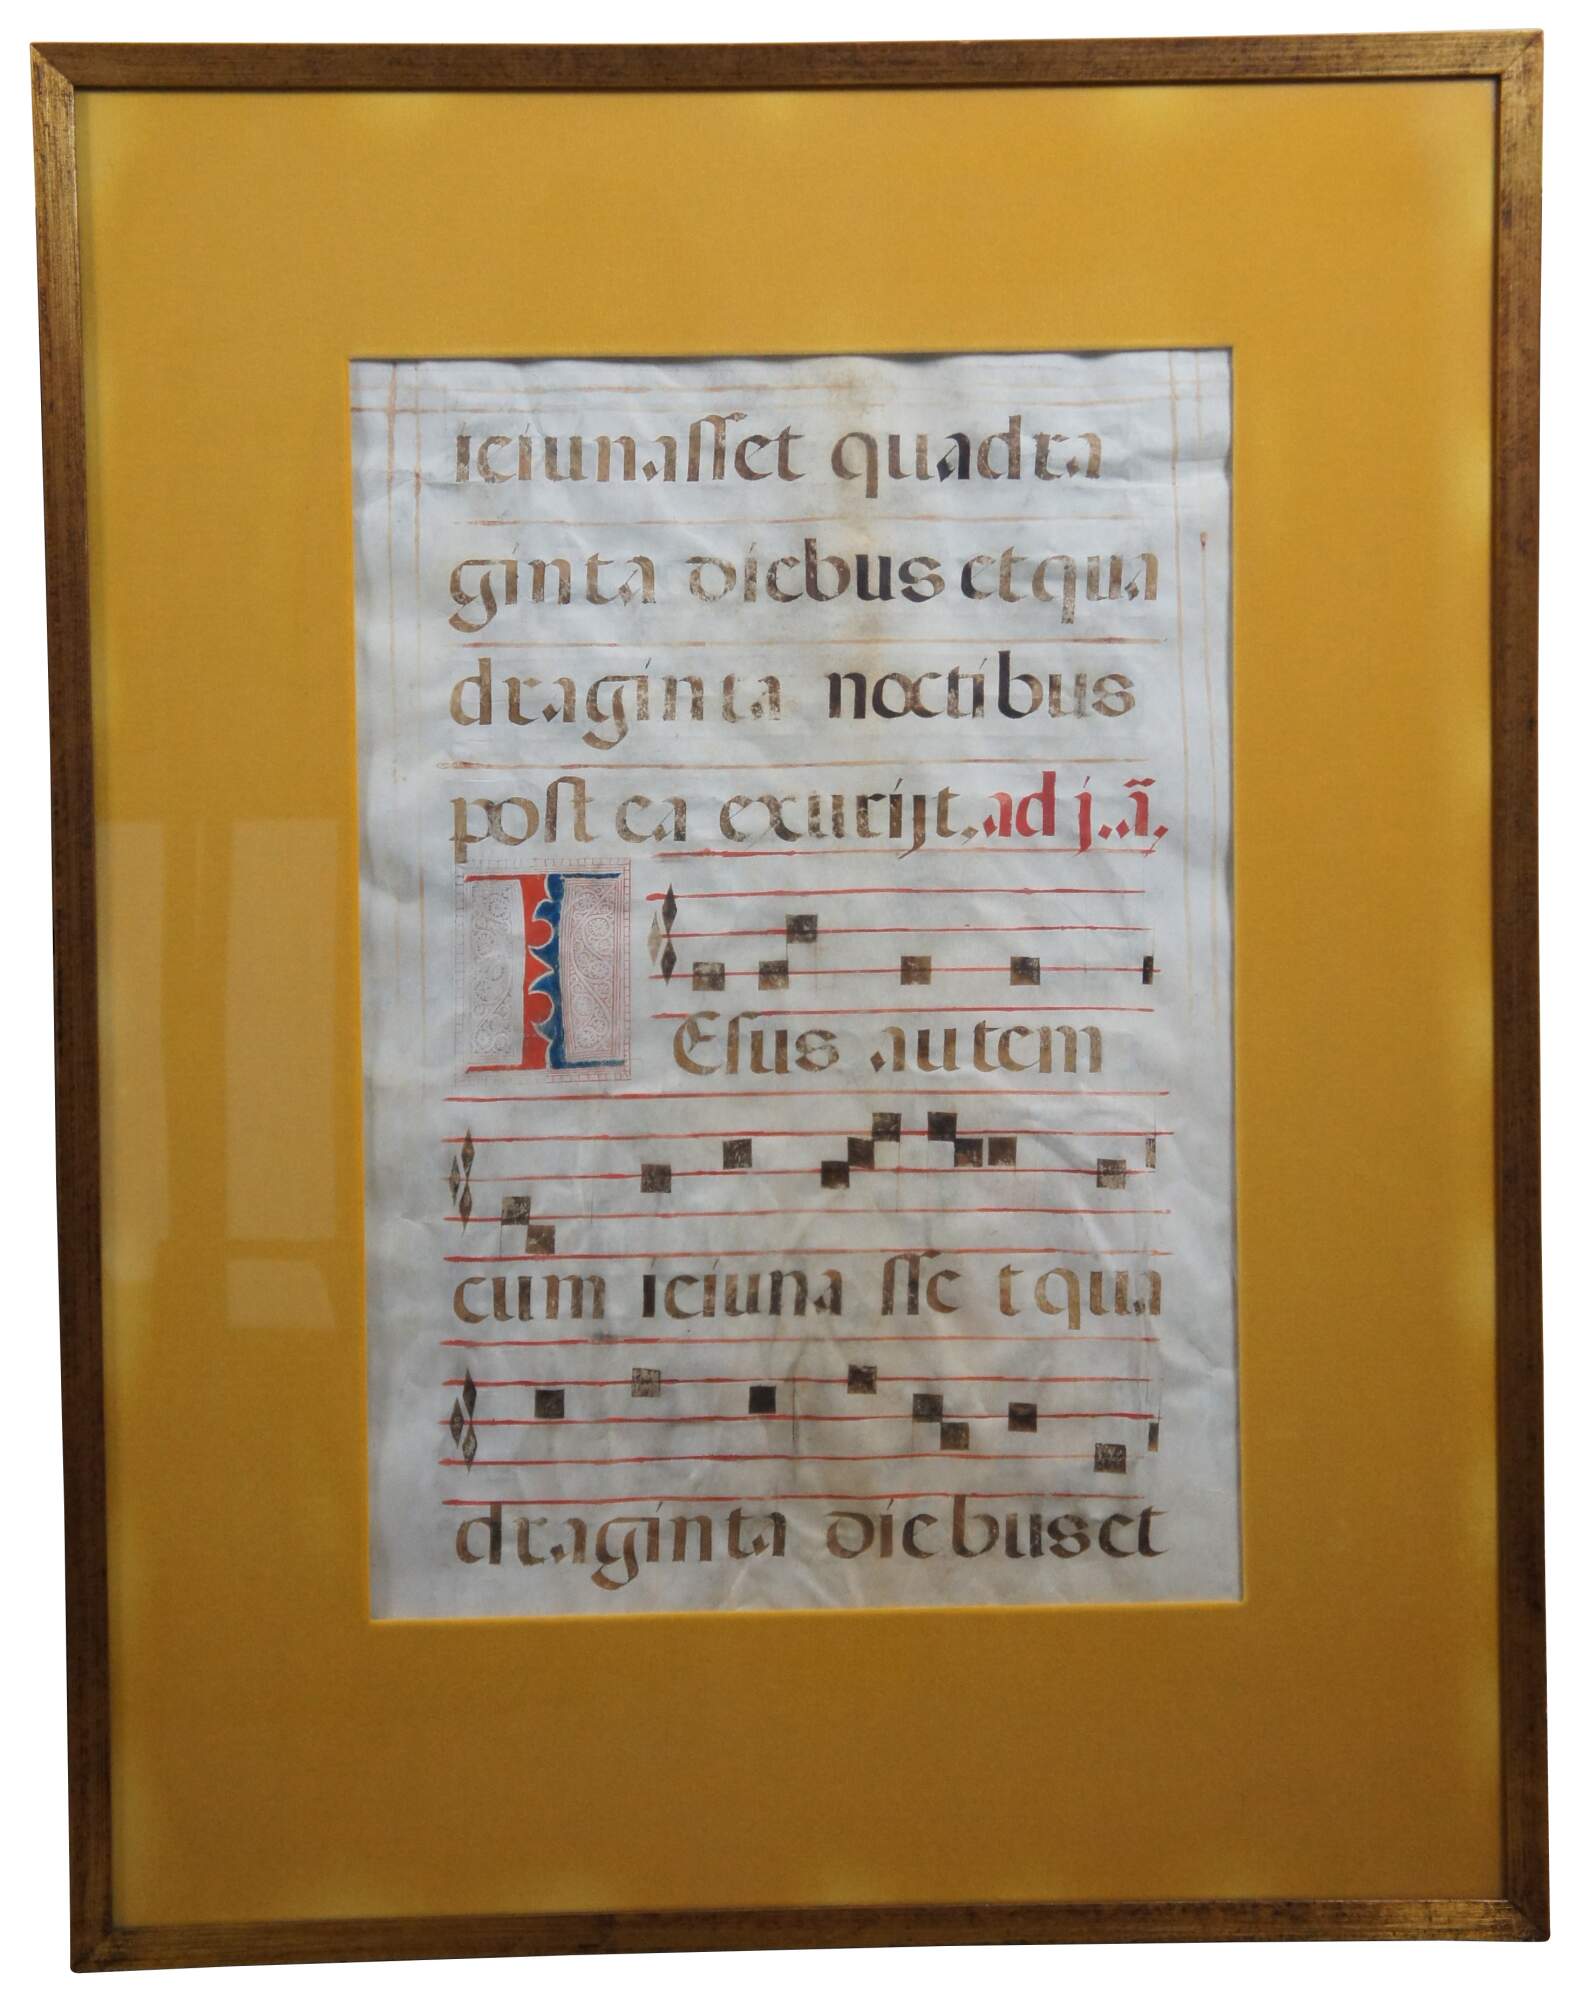 ieiunasset quadra
ginta diebus et qua
draginta noctibus
postea exurijt. ad j. .ã.
IEsus autem
cum ieiunasset qua
draginta diebus et